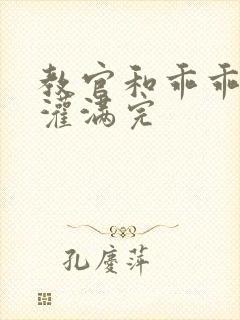 教官和乖乖
灌满完
孔庆萍